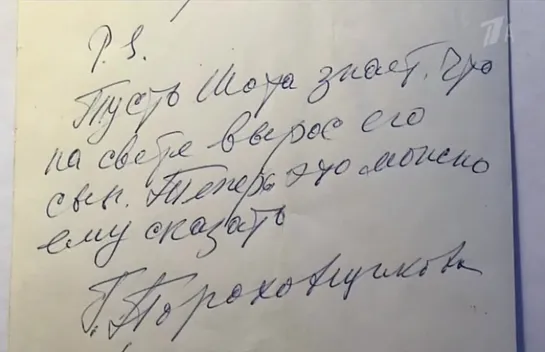 P.S.
Пусть Шота знает, что
на свете вырос его
сын. Теперь это можно
ему сказать
Г. Пороховщикова